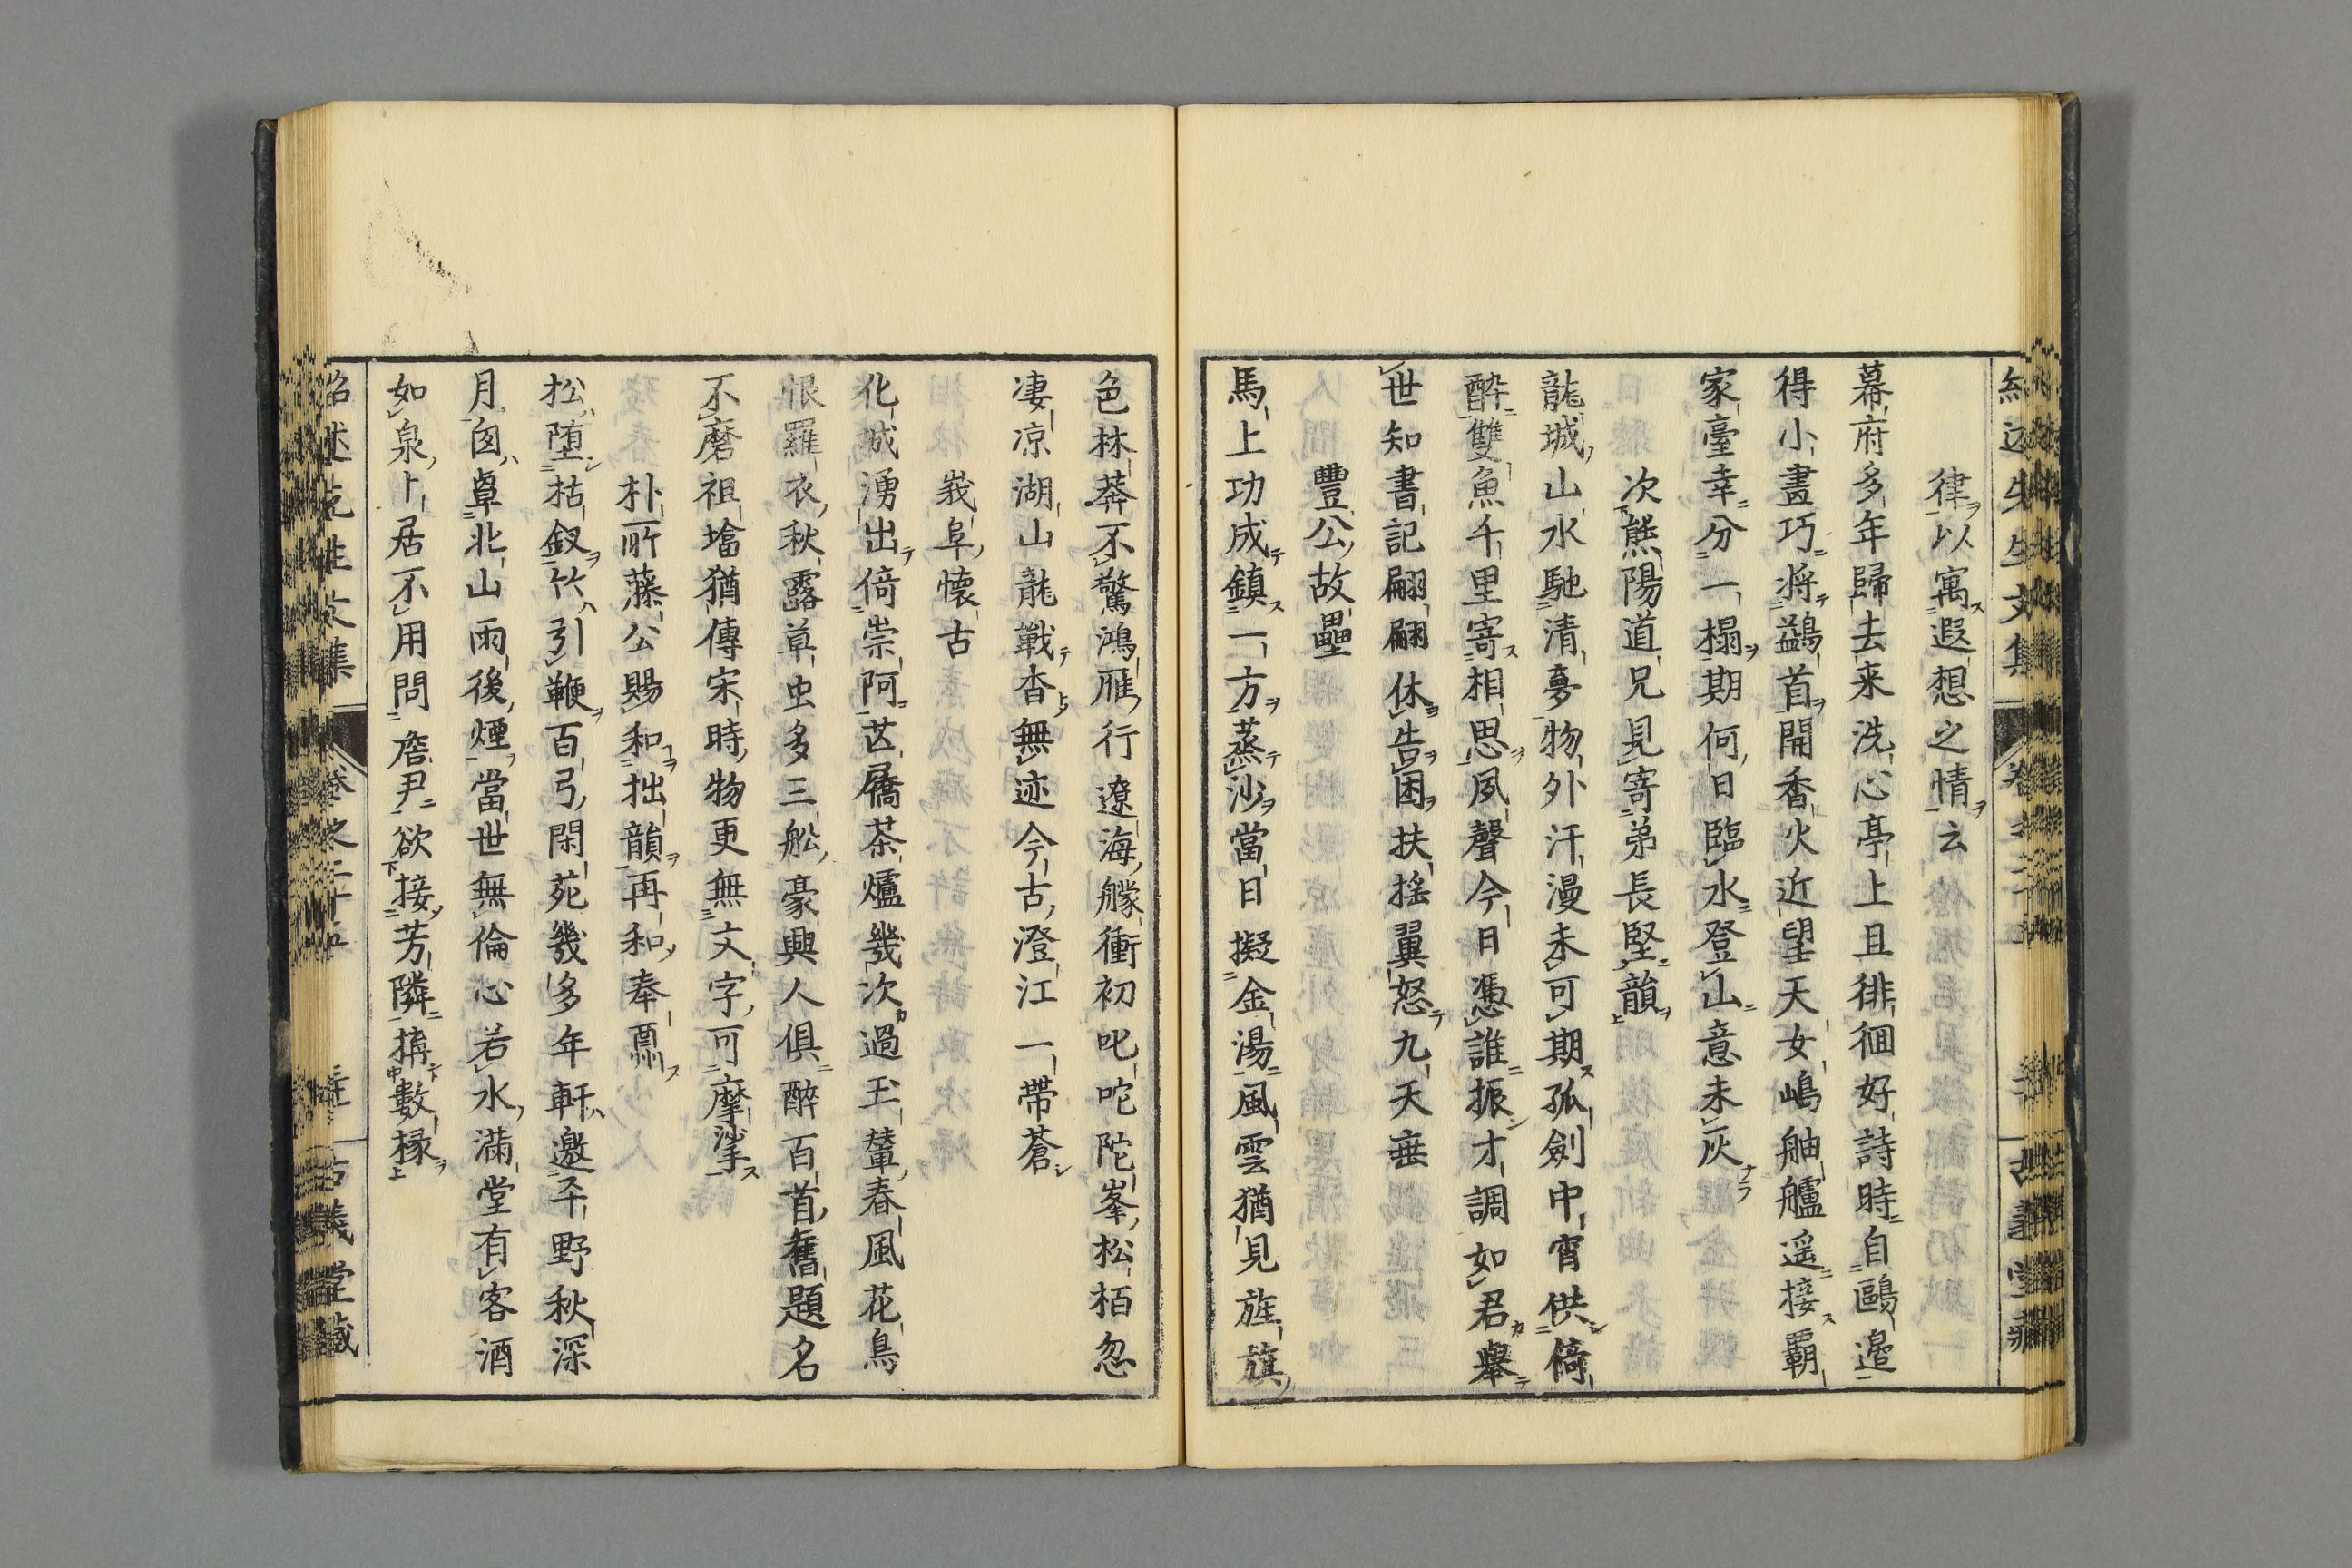 律以寓遐想之情云
幕府多年歸去来洗心亭上且徘徊好詩時自鷗邉
得小畫巧將鷁首開香火近望天女嶋舳艫遥接覇
家臺幸分一榻期何日臨水登山意未灰
次熊陽道兄見寄弟長堅韻
龍城山水馳清夢物外汗漫未可期孤劍中宵供倚
醉雙魚千里寄相思夙聲今日憑誰振才調如君舉
世知書記翩翩休告困扶搖翼怒九天垂
豐公故壘
馬上功成鎮一方蒸沙當日擬金湯風雲猶見旌旗
色林莽不驚鴻雁行遼海艨衝初叱咤陀峯松栢忽
凄凉湖山龍戰杳無迹今古澄江一帶蒼
峩阜懷古
化城湧出倚崇阿芒屩茶爐幾次過玉輦春風花鳥
恨羅衣秋露草虫多三舩豪興人俱醉百首舊題名
不磨祖墖猶傳宋時物更無文字可摩挲
朴所藤公賜和拙韻再和奉酬
松堕枯釵竹引鞭百弓閑苑幾多年軒邀平野秋深
月囱卓北山雨後煙當世無倫心若水滿堂有客酒
如泉卜居不用問詹尹欲接芳隣搆數椽
紹述先生文集
卷之二十五
古義堂藏